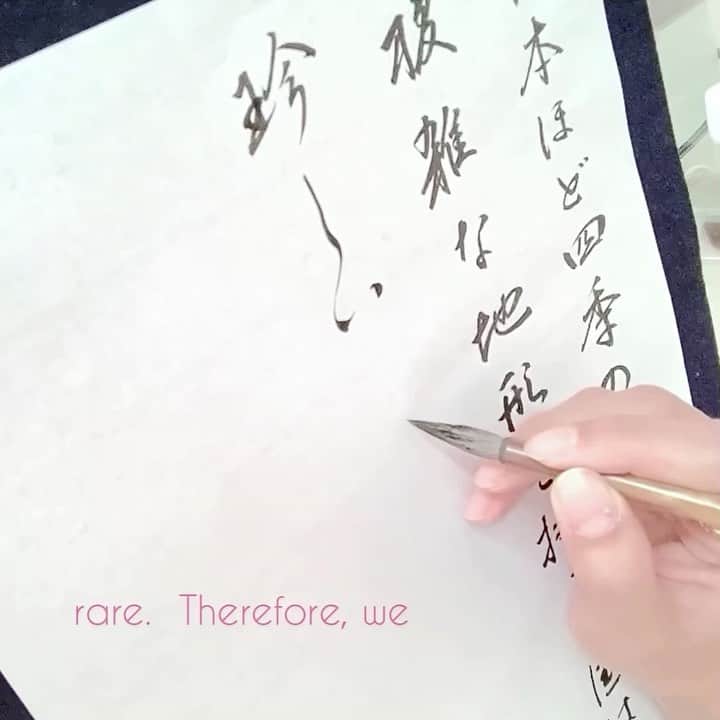 本ほど四季の
複雑な地形
珍しい
rare. Therefore, we